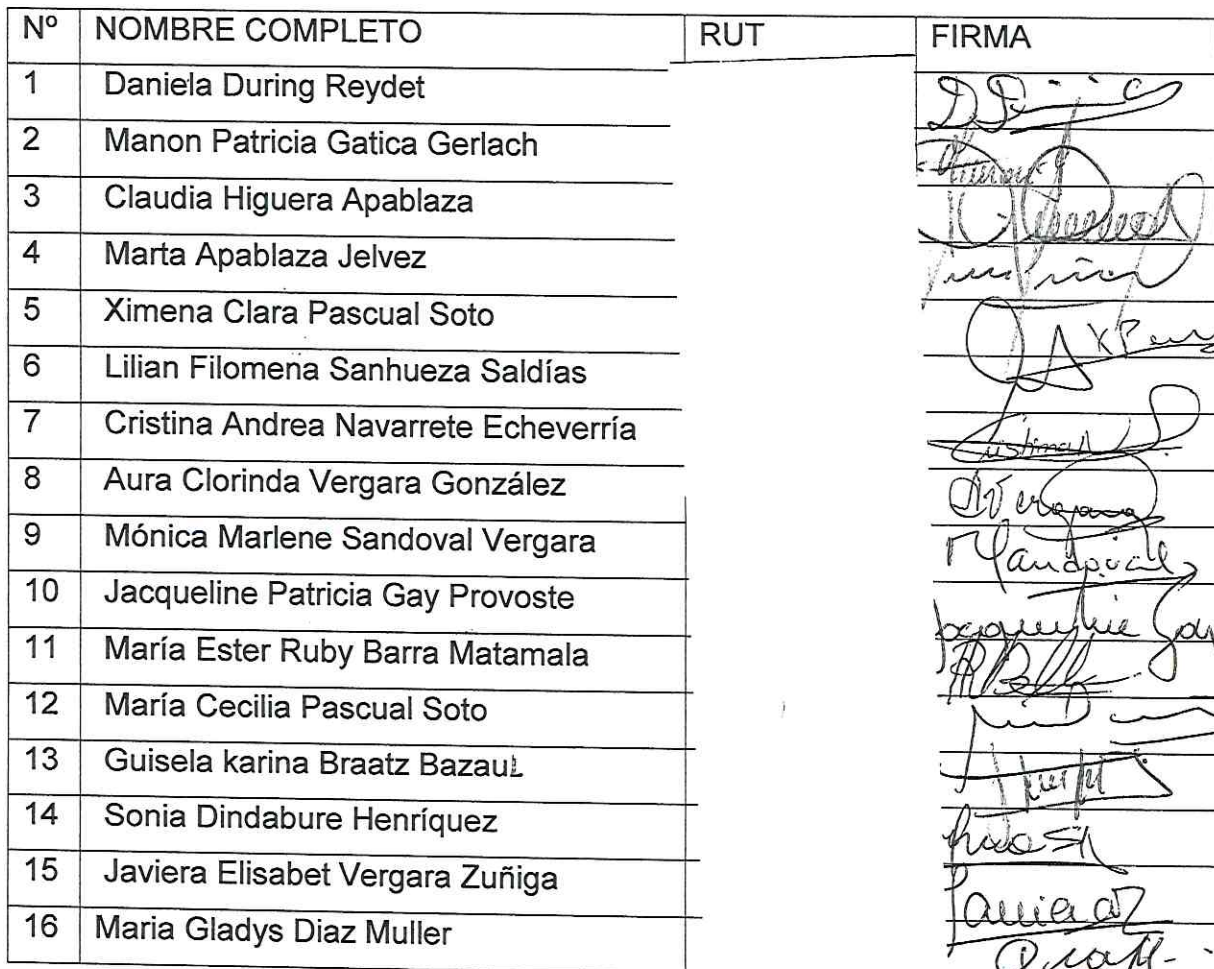 Nº NOMBRE COMPLETO RUT FIRMA
1 Daniela During Reydet
2 Manon Patricia Gatica Gerlach
3 Claudia Higuera Apablaza
4 Marta Apablaza Jelvez
5 Ximena Clara Pascual Soto
6 Lilian Filomena Sanhueza Saldías
7 Cristina Andrea Navarrete Echeverría
8 Aura Clorinda Vergara González
9 Mónica Marlene Sandoval Vergara
10 Jacqueline Patricia Gay Provoste
11 María Ester Ruby Barra Matamala
12 María Cecilia Pascual Soto
13 Guisela karina Braatz Bazaul
14 Sonia Dindabure Henríquez
15 Javiera Elisabet Vergara Zuñiga
16 Maria Gladys Diaz Muller